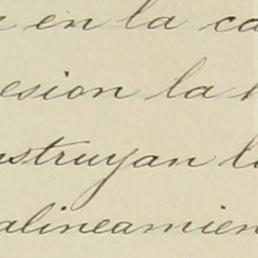 a en la ca
esion la
nstruyan l
alineamien